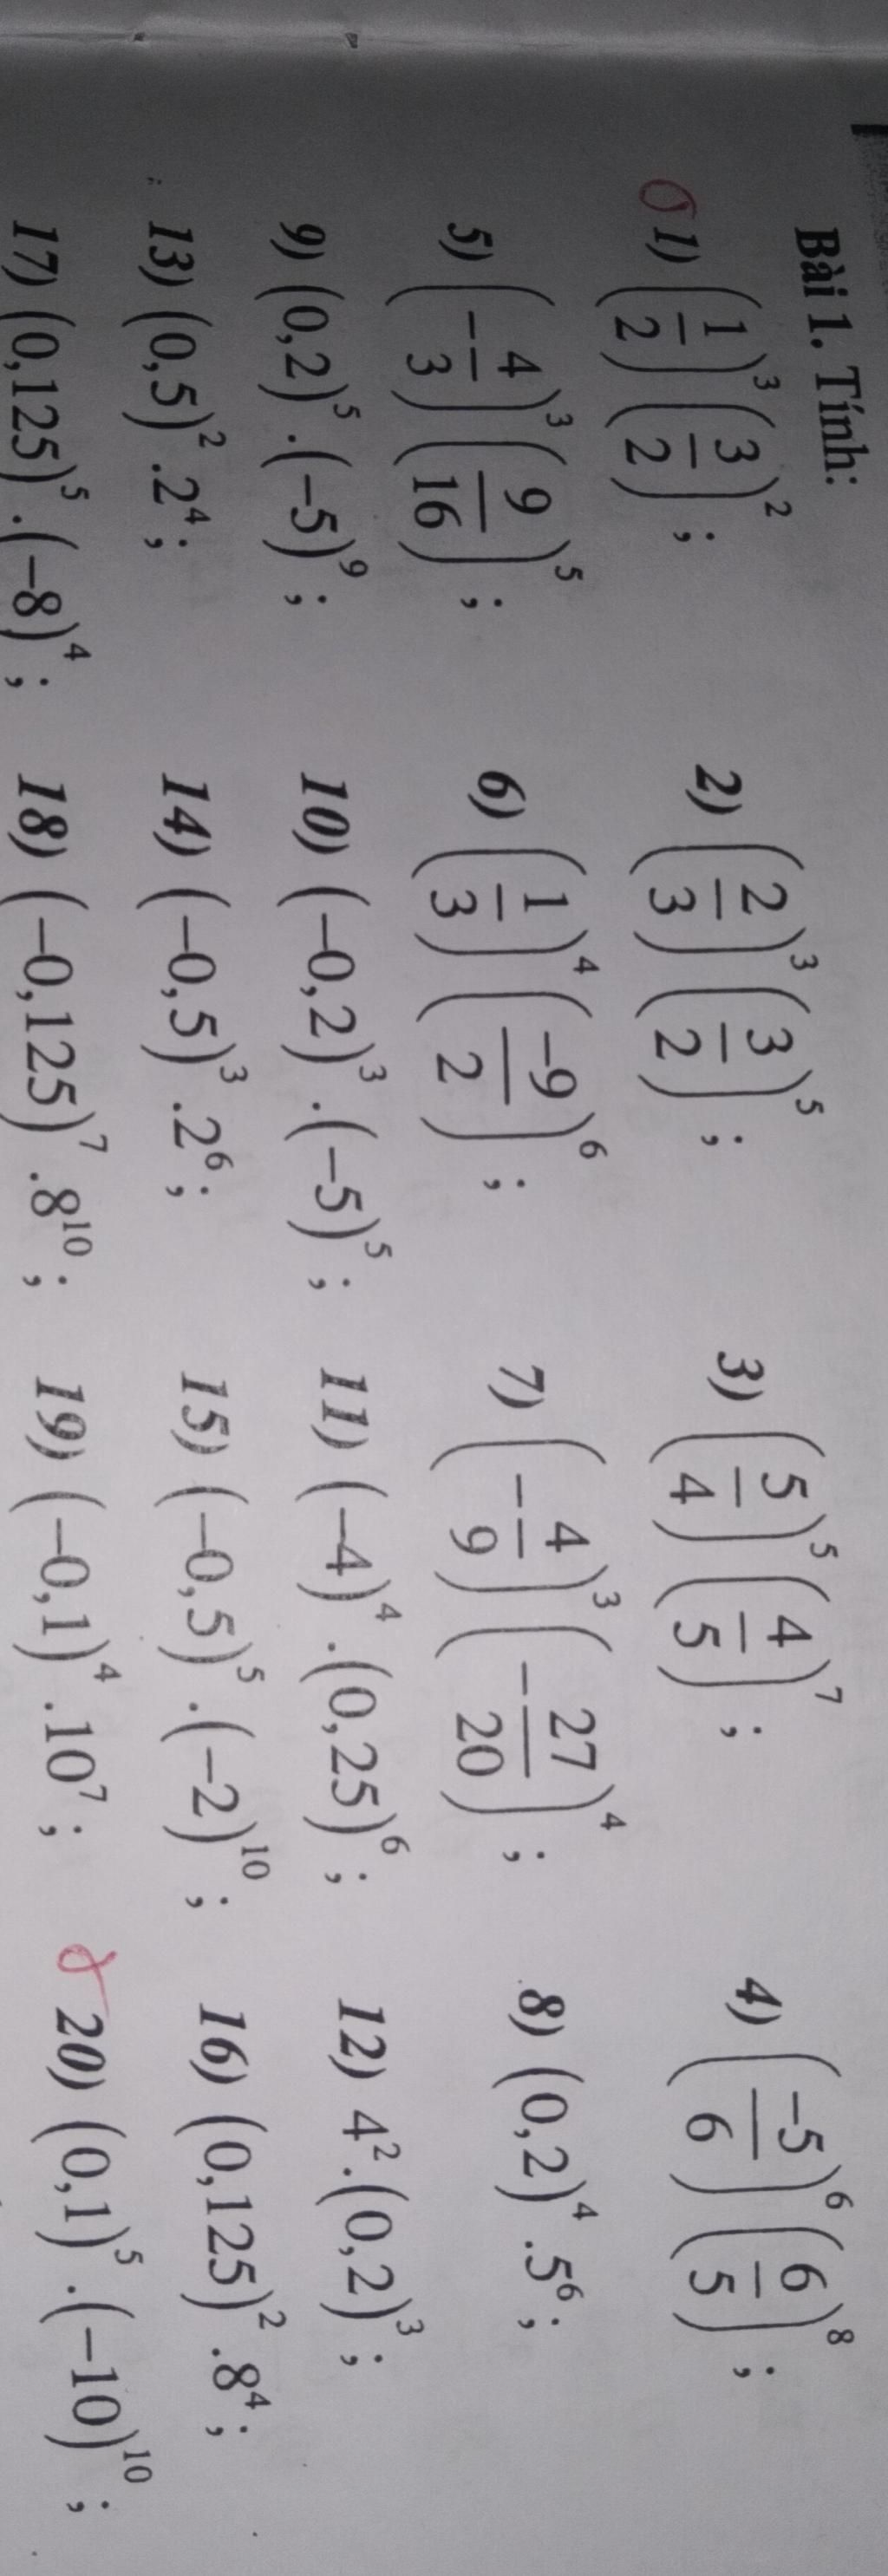 Bài 1. Tính:
1) (1/2)³(3/2)²; 2) (2/3)³(3/2)⁵; 3) (5/4)⁵(4/5)⁷; 4) (-5/6)⁶(6/5)⁸;
5) (-4/3)³(9/16)⁵; 6) (1/3)⁴(-9/2)⁶; 7) (-4/9)³(-27/20)⁴; 8) (0,2)⁴.5⁶;
9) (0,2)⁵.(-5)⁹; 10) (-0,2)³.(-5)⁵; 11) (-4)⁴.(0,25)⁶; 12) 4².(0,2)³;
13) (0,5)².2⁴; 14) (-0,5)³.2⁶; 15) (-0,5)⁵.(-2)¹⁰; 16) (0,125)².8⁴;
17) (0,125)⁵.(-8)⁴; 18) (-0,125)⁷.8¹⁰; 19) (-0,1)⁴.10⁷; 20) (0,1)⁵.(-10)¹⁰;